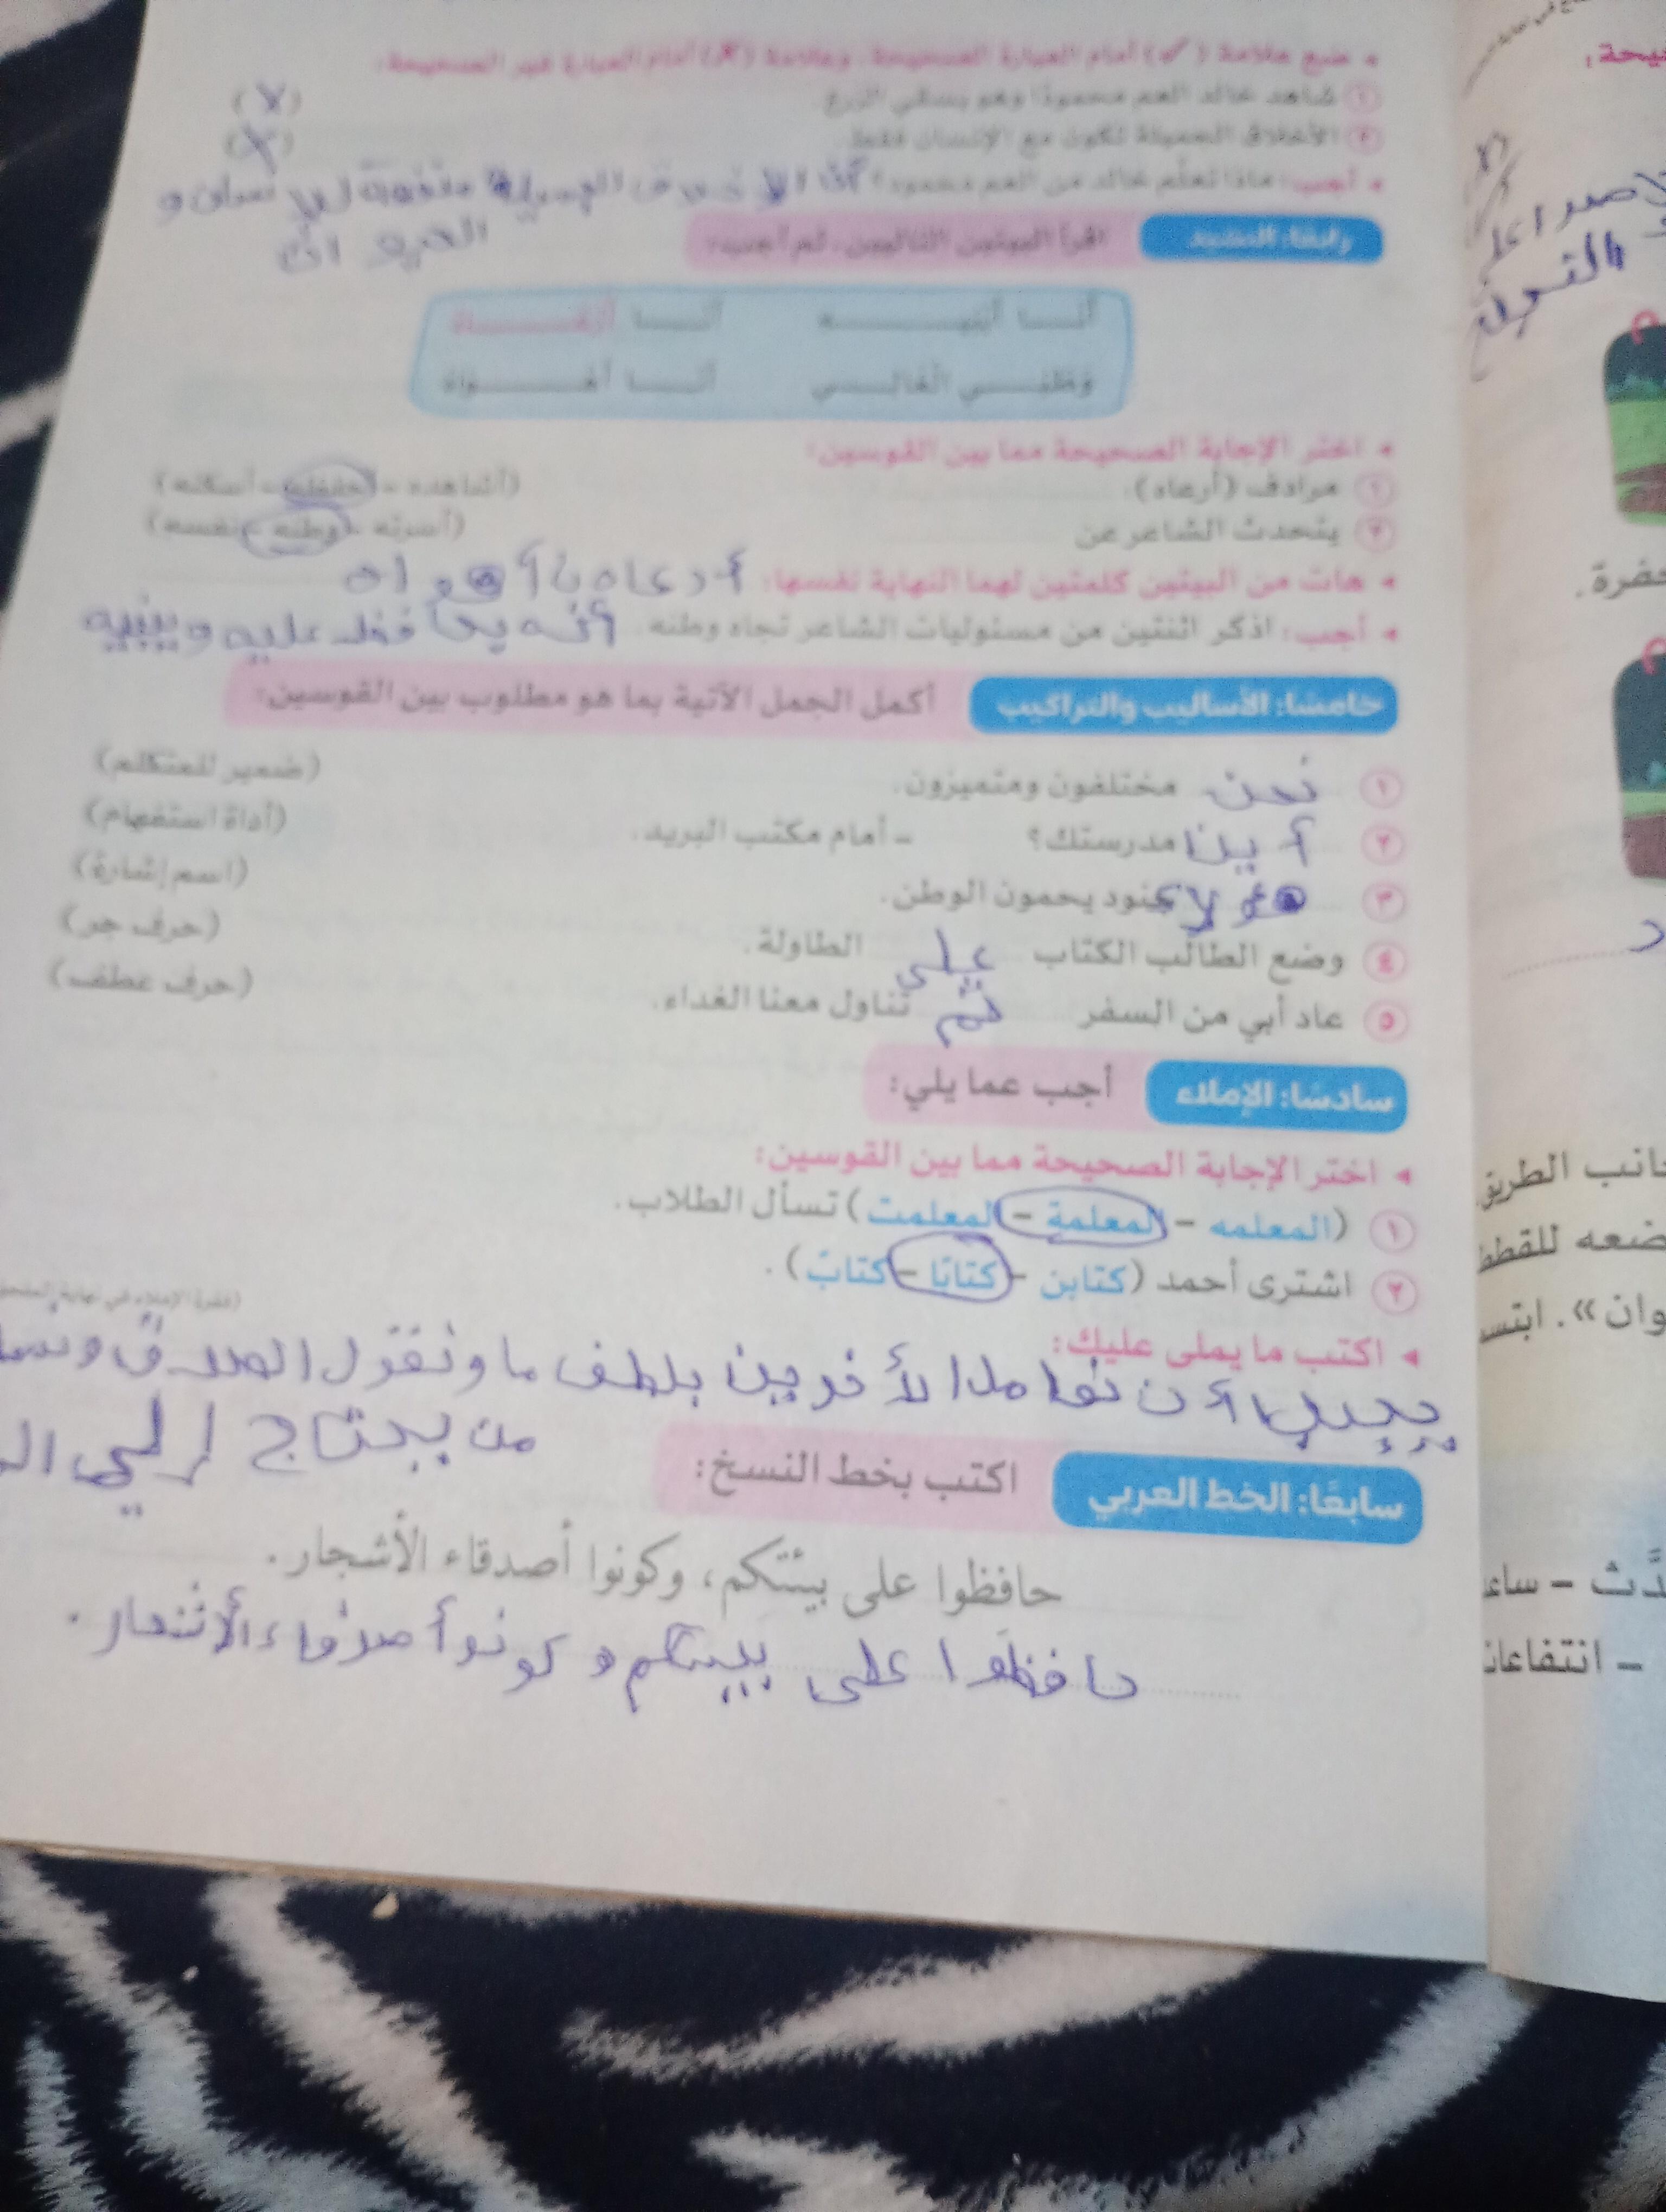 ضع علامة (✓) أمام العبارة الصحيحة، وعلامة (X) أمام العبارة غير الصحيحة:
١ شاهد خالد العم محمودًا وهو يسقي الزرع. (X)
٢ الأخلاق الجميلة تكون مع الإنسان فقط. (X)
أجب: ماذا تعلم خالد من العم محمود؟ الجميلة و
رابعًا: النشيد اقرأ البيتين التاليين، ثم أجب:
أنا أبنيه أنا أرعاه
وطني الغالي أنا أهواه
اختر الإجابة الصحيحة مما بين القوسين:
١ مرادف (أرعاه). (أشاهده - أحفظه - أسكنه)
٢ يتحدث الشاعر عن (أسرته - وطنه - نفسه)
هات من البيتين كلمتين لهما النهاية نفسها: أرعاه
أجب: اذكر اثنتين من مسئوليات الشاعر تجاه وطنه. أنه يحافظ عليه ويبنيه
خامسًا: الأساليب والتراكيب أكمل الجمل الآتية بما هو مطلوب بين القوسين:
١ نحن مختلفون ومتميزون. (ضمير للمتكلم)
٢ أين مدرستك؟ - أمام مكتب البريد. (أداة استفهام)
٣ هؤلاء جنود يحمون الوطن. (اسم إشارة)
٤ وضع الطالب الكتاب على الطاولة. (حرف جر)
٥ عاد أبي من السفر ثم تناول معنا الغداء. (حرف عطف)
سادسًا: الإملاء أجب عما يلي:
اختر الإجابة الصحيحة مما بين القوسين:
١ (المعلمه - المعلمة - المعلمت) تسأل الطلاب.
٢ اشترى أحمد (كتابن - كتابًا - كتابٌ).
(فقرة الإملاء في نهاية
اكتب ما يملى عليك:
يجب أن نعامل الأخرين بلطف ونقول الصدق
من يحتاج إلي
سابعًا: الخط العربي اكتب بخط النسخ:
حافظوا على بيئتكم، وكونوا أصدقاء الأشجار.
حافظوا على بيئتكم وكونوا أصدقاء الأشجار.
حضرة.
جانب الطريق
ضعه للقطط
وان». ابتسم
دَّث - ساعد
- انتفاعات